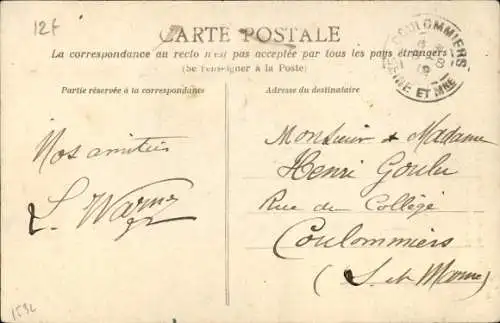 12f
CARTE POSTALE
La correspondance au recto n'est pas acceptée par tous les pays étrangers
(Se renseigner à la Poste)
COULOMMIERS
NE ET MNE
Partie réservée à la correspondance
Adresse du destinataire
Nos amitiés
Monsieur & Madame
Henri Goulu
Rue du Collège
Coulommiers
(S. et Marne)